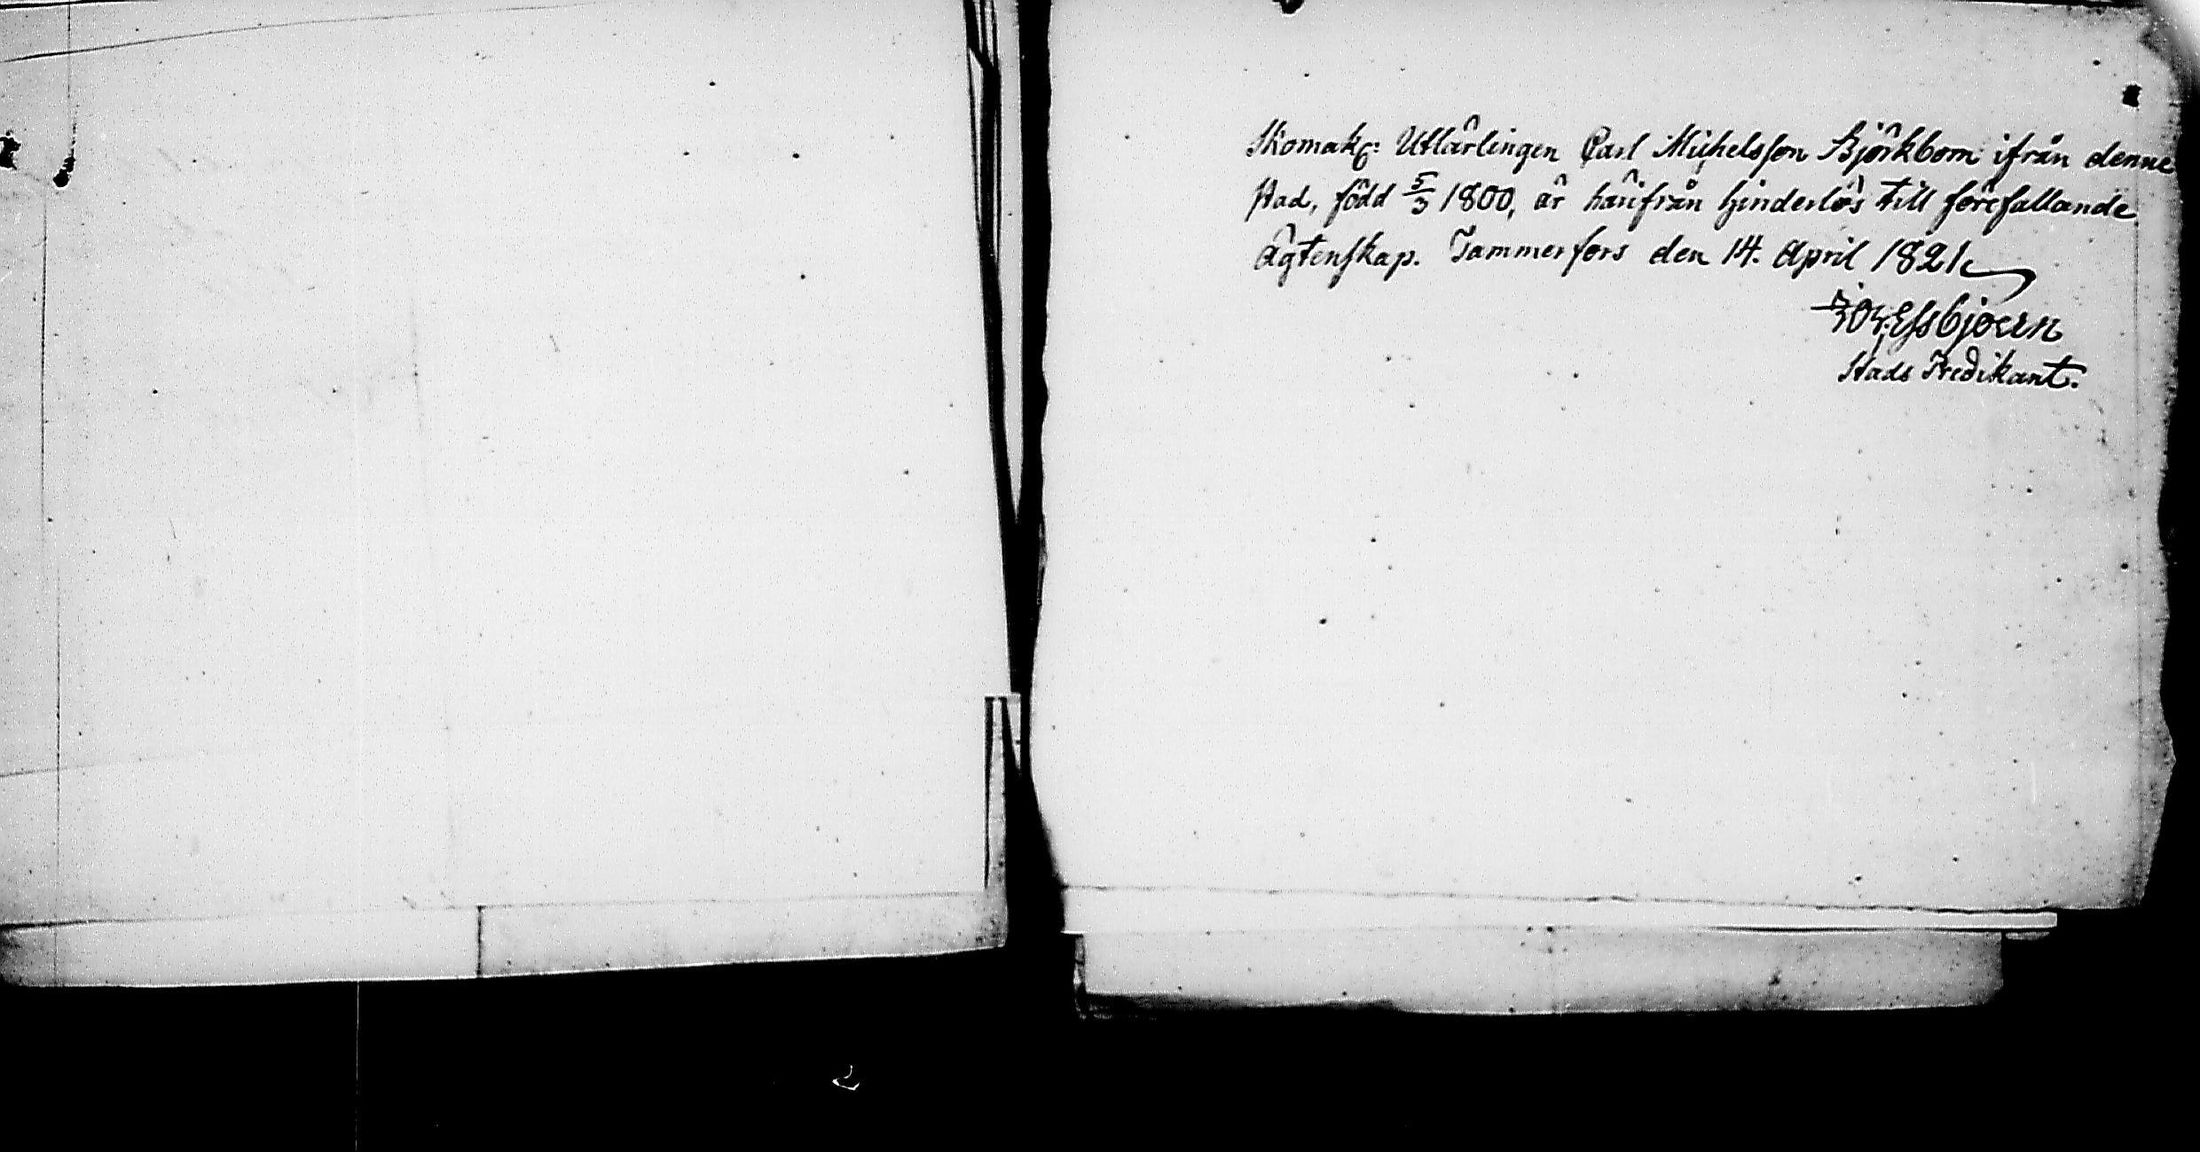 Skomak: Utlärlingen Carl Michelsson Björkbom ifrån denne
stad, född 5/3 1800, är härifrån hinderlös till förefallande
ägtenskap. Tammerfors den 14. April 1821.
Essbjoern
Stads Predikant.